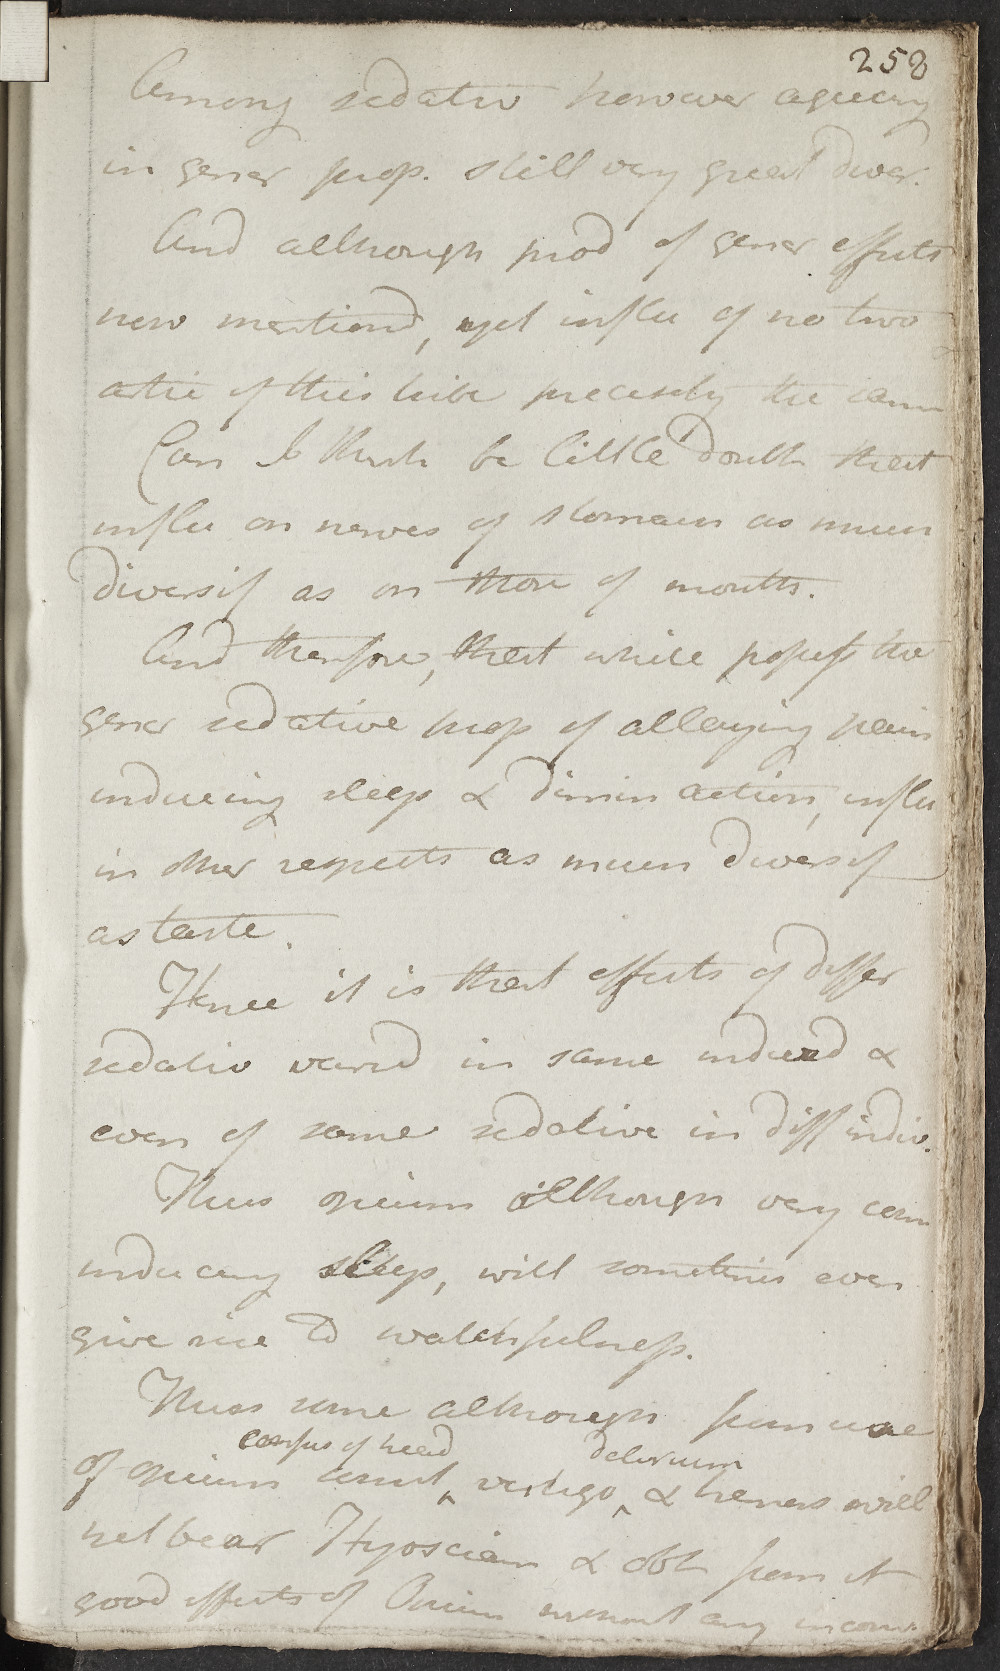 258
Among sedativ however agreeing
in gener prop. still very great diver.
And although prod of gener effects
now mentiond, yet influ of no two
artic of this tribe precisely the sam
Can I think be little doubt that
influ on nerves of stomach as much
diversif as on those of mouth.
And therefore, that while possess the
gener sedative prop of allaying pain
inducing sleep & dimin action, influ
in other respects as much diversif
as taste.
Hence it is that effects of differ
sedativ varied in same individ &
even of same sedative in diff indiv.
Thus opium although very com
inducing sleep, will sometimes even
give rise to watchfulness.
Thus some although from use
confus of head delirium
of opium vertigo & will
not bear Hyosciam & obt from it
good effects of Opium without any inconv